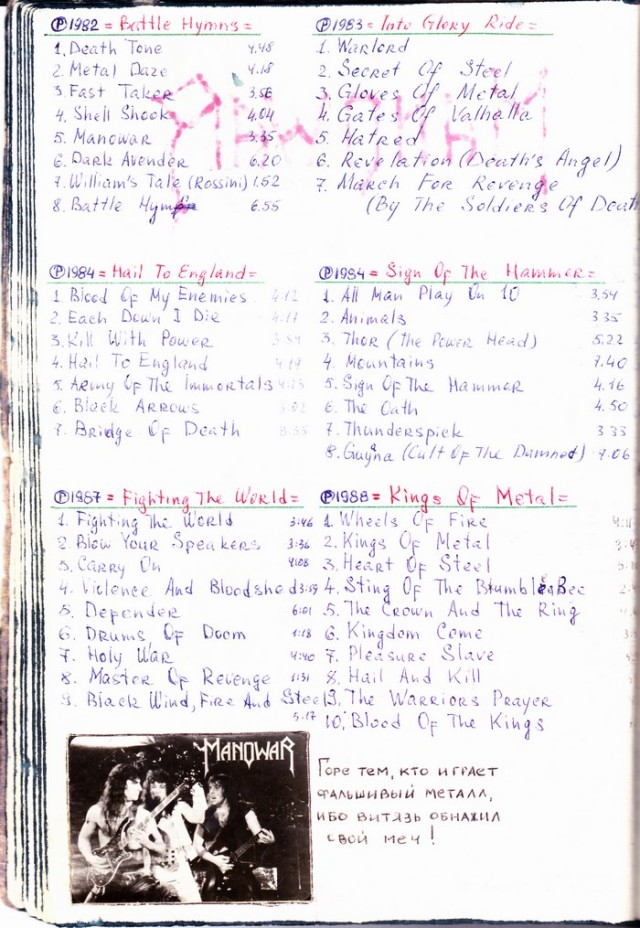 ℗1982 = Battle Hymns =
1. Death Tone 4.48
2. Metal Daze 4.18
3. Fast Taker 3.56
4. Shell Shook 4.04
5. Manowar 3.35
6. Dark Avender 6.20
7. William's Tale (Rossini) 1.52
8. Battle Hymn 6.55
℗1983 = Into Glory Ride =
1. Warlord
2. Secret Of Steel
3. Gloves Of Metal
4. Gates Of Valhalla
5. Hatred
6. Revelation (Death's Angel)
7. March For Revenge
(By The Soldiers Of Death
℗1984 = Hail To England =
1. Blood Of My Enemies 4.12
2. Each Down I Die 4.17
3. Kill With Power
4. Hail To England 4.19
5. Army Of The Immortals 4.23
6. Black Arrows 3.02
7. Bridge Of Death 8.55
℗1984 = Sign Of The Hammer =
1. All Man Play On 10 3.54
2. Animals 3.35
3. Thor (The Power Head) 5.22
4. Mountains 7.40
5. Sign Of The Hammer 4.16
6. The Oath 4.50
7. Thunderspick 3.33
8. Guyna (Cult Of The Damned) 7.06
℗1987 = Fighting The World =
1. Fighting The World 3:46
2. Blow Your Speakers 3:36
3. Carry On 4:08
4. Violence And Bloodshed 3:59
5. Depender 6:01
6. Drums Of Doom 1:18
7. Holy War 4:40
8. Master Of Revenge 1:31
9. Black Wind, Fire And Steel
5.17
℗1988 = Kings Of Metal =
1. Wheels Of Fire
2. Kings Of Metal
3. Heart Of Steel
4. Sting Of The Bumblebee
5. The Crown And The Ring
6. Kingdom Come
7. Pleasure Slave
8. Hail And Kill
9. The Warriors Prayer
10. Blood Of The Kings
MANOWAR
Горе тем, кто играет
фальшивый металл,
ибо витязь обнажил
свой меч!